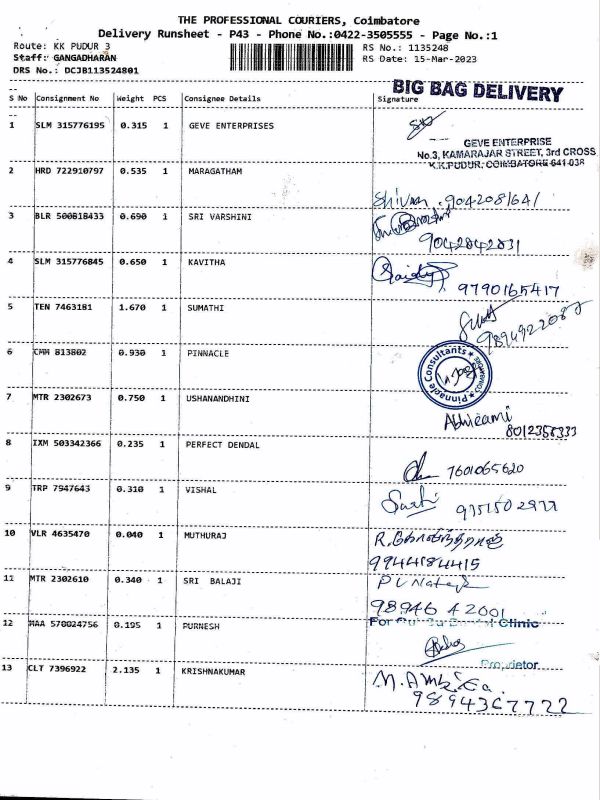 THE PROFESSIONAL COURIERS, Coimbatore
Delivery Runsheet - P43 - Phone No.:0422-3505555 - Page No.:1
Route: KK PUDUR 3 RS No.: 1135248
Staff: GANGADHARAN RS Date: 15-Mar-2023
DRS No.: DCJB113524801
BIG BAG DELIVERY
S No Consignment No Weight PCS Consignee Details Signature
1 SLM 315776195 0.315 1 GEVE ENTERPRISES
GEVE ENTERPRISE
No.3, KAMARAJAR STREET, 3rd CROSS
K.K.PUDUR, COIMBATORE-641 038
2 HRD 722910797 0.535 1 MARAGATHAM
Shivam 904208164/
3 BLR 500818433 0.690 1 SRI VARSHINI
9042842831
4 SLM 315776845 0.650 1 KAVITHA
9790165417
5 TEN 7463181 1.670 1 SUMATHI
6 CMM 813802 0.930 1 PINNACLE
Pinnacle Consultants
7 MTR 2302673 0.750 1 USHANANDHINI
Abhirami
8012356333
8 IXM 503342366 0.235 1 PERFECT DENDAL
7601065620
9 TRP 7947643 0.310 1 VISHAL
10 VLR 4635470 0.040 1 MUTHURAJ
R.கோவிந்தராஜ்
9944184415
11 MTR 2302610 0.340 1 SRI BALAJI
98946 42001
For Clinic
12 MAA 570024756 0.195 1 PURNESH
Proprietor
13 CLT 7396922 2.135 1 KRISHNAKUMAR
9894367722